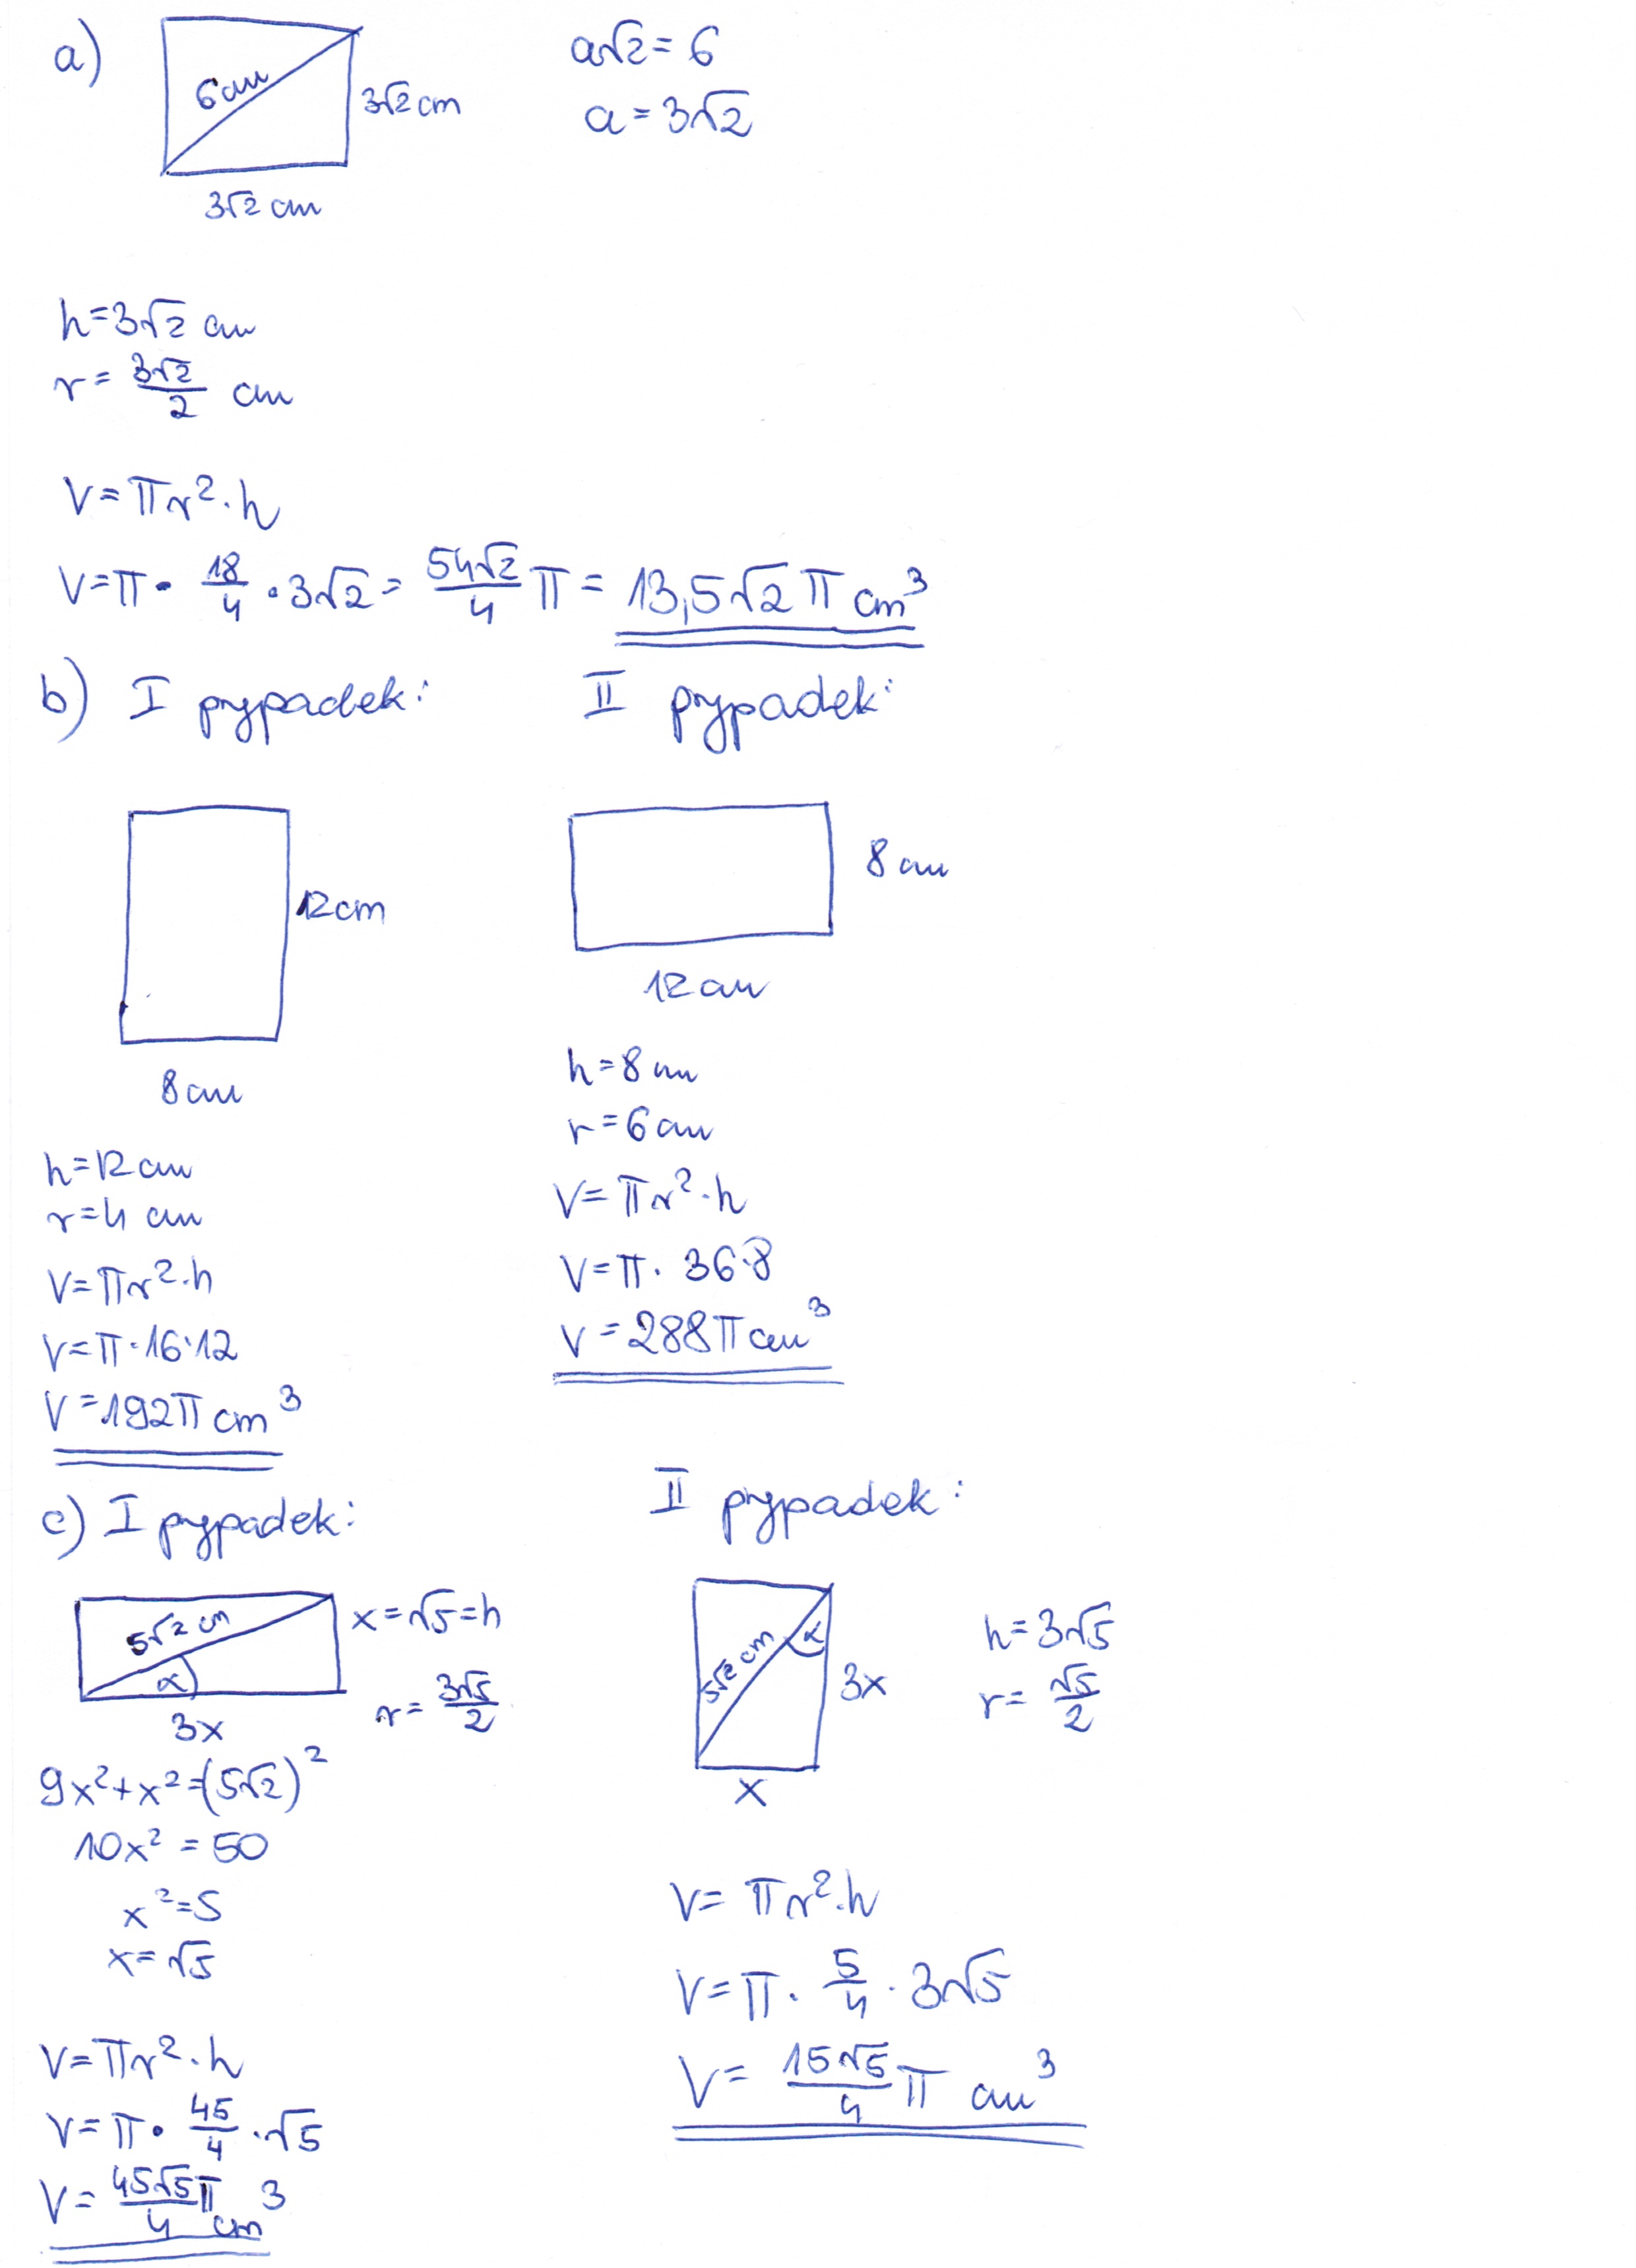 a)
6cm
3√2 cm
3√2 cm
a√2 = 6
a = 3√2
h = 3√2 cm
r = 3√2/2 cm
V = πr²·h
V = π · 18/4 · 3√2 = 54√2/4 π = 13,5√2 π cm³
b) I przypadek:
12cm
8cm
h = 12 cm
r = 4 cm
V = πr²·h
V = π·16·12
V = 192π cm³
II przypadek:
8 cm
12 cm
h = 8 cm
r = 6 cm
V = πr²·h
V = π· 36·8
V = 288π cm³
c) I przypadek:
5√2 cm
α
3x
x = √5 = h
r = 3√5/2
9x² + x² = (5√2)²
10x² = 50
x² = 5
x = √5
V = πr²·h
V = π · 45/4 · √5
V = 45√5/4 π cm³
II przypadek:
5√2 cm
α
3x
x
h = 3√5
r = √5/2
V = πr²·h
V = π · 5/4 · 3√5
V = 15√5/4 π cm³